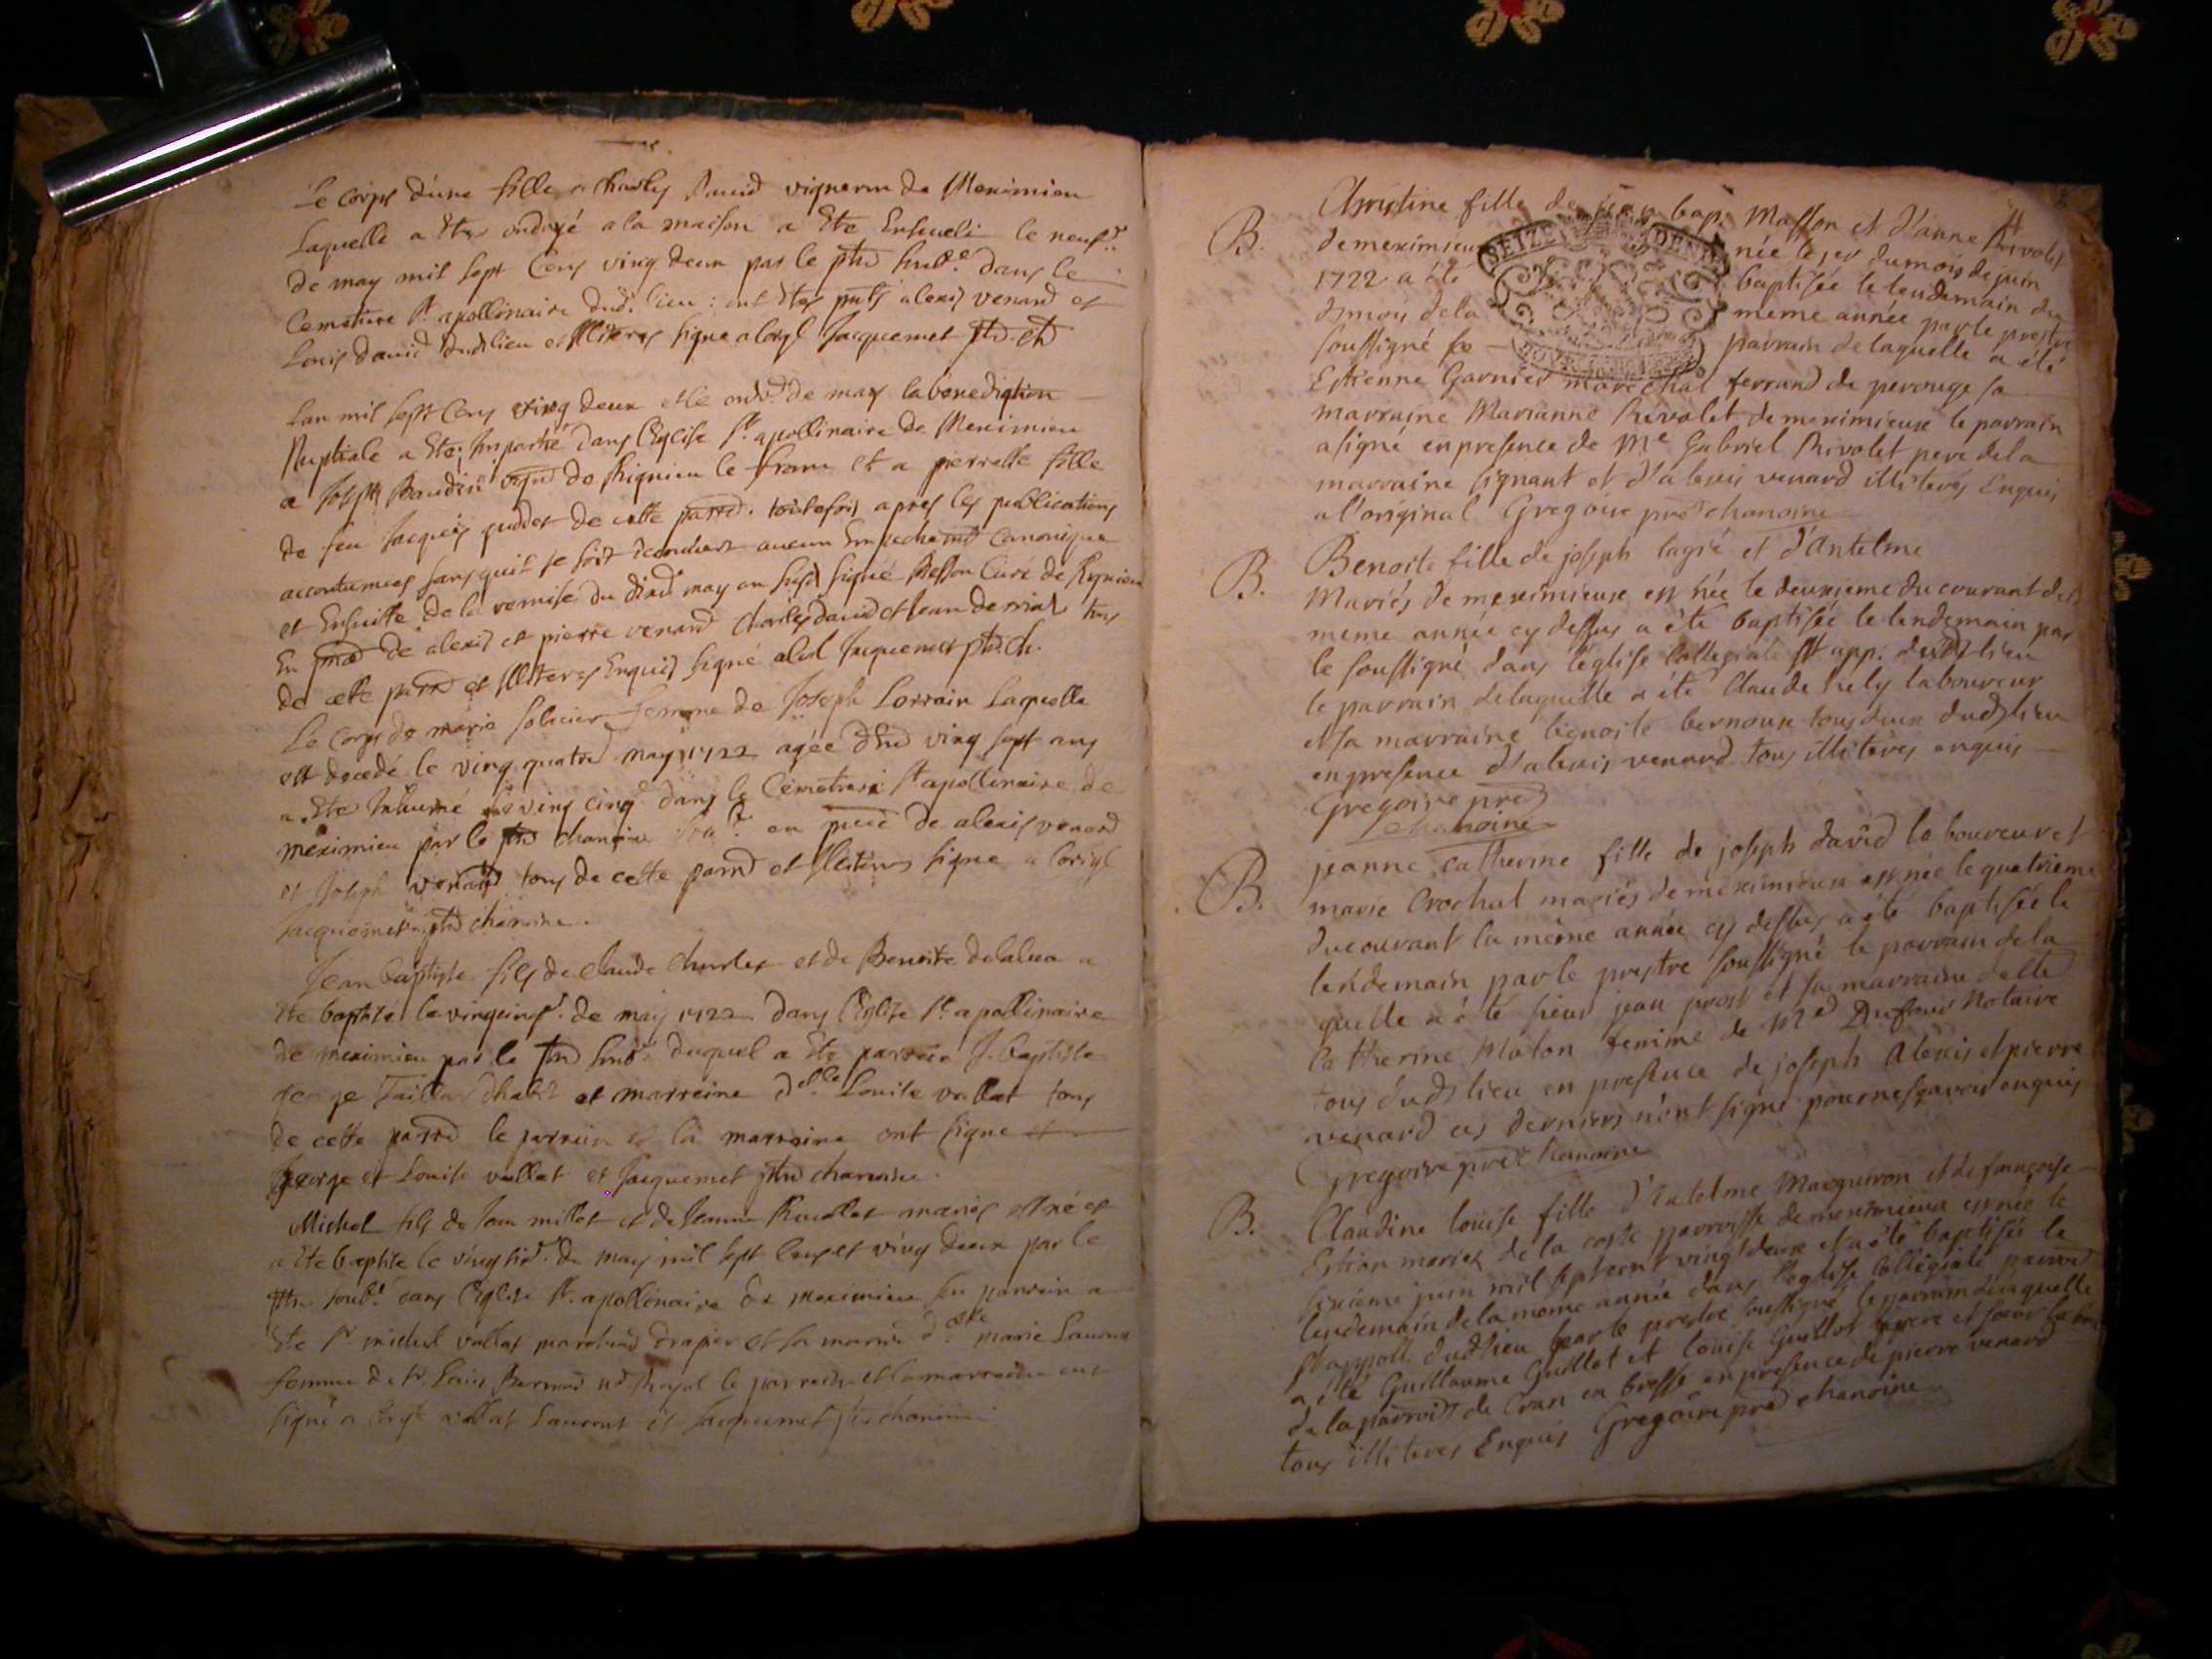 Le corps dune fille a Charles David vigneron de Meximieu
Laquelle a Ete ondoyé a la maison a Ete Enseveli le neufe
de may mil sept Cens ving deux par le ptre dans le
Cemetiere st apollinaire dud. lieu : ont Etes pnts alexis venard et
Louis david dud lieu et Illiteres signe a lorigl Jacquemet ptre ch
Lan mil sept Cens ving deux et le de may la benediction
Nuptiale a Ete Impartie dans l'Eglise st. apollinaire de Meximieu
a Joseph Baudin de Rignieu le franc et a pierrette fille
de feu Jacques de cette parr. toutefois apres les publications
accoutumees sans quil se soit decouvert aucun Empechemt Canonique
et Ensuitte de la remise du may an susd signé Besson Curé de Rignieu
En pnce de alexis et pierre venard charles david et Jean tous
de cette parr et Illiteres Enquis signé Jacquemet ptre. ch.
Le Corps de marie femme de Joseph Lorrain Laquelle
est decedé le ving quatre may 1722 agée ving sept ans
a Ete Inhumé le ving cinq dans le Cemetiere st apollinaire de
meximieu par le chanoine en pnce de alexis venard
et Joseph venard tous de cette parr et Illiteres signe a lorigl
Jacquemet ptre chanoine.
Jean baptiste fils de claude charles et de Benoite a
Ete baptisé le vingcinq. de may 1722 dans l'Eglise st apollinaire
de meximieu par le ptre duquel a Ete parrein J. baptiste
george et marreine delle Louise vallat tous
de cette parr le parrein et la marreine ont signe
george et Louise vallat et Jacquemet ptre chanoine.
Michel fils de Jean millet et de Jeanne Rivollet mariés est né et
a Ete baptise le ving six. de may mil sept Cens et ving deux par le
ptre dans l'Eglise st. apollinaire de meximieu son parrein a
Ete sr michel vallat marchand drapier et sa marne delle marie Laurent
femme de sr. Louis Bernard le parrein et la marreine ont
signé a lorigl vallat Laurent et Jacquemet ptre chanoine
Christine fille de jean bap. Masson et d'anne Rivolet
B. de meximieux née le 1er du mois de juin
SEIZE DEN
1722 a été baptisée le lendemain du
dmois de la meme année par le prestre
soussigné parrain de laquelle a été
Estienne Garnier marechal ferrand de perouge sa
marraine Marianne Rivolet de meximieux le parrain
a signé en presence de Me Gabriel Rivolet pere de la
marraine signant et d'alexis venard illiterés Enquis
a l'original Gregoire pre chanoine
B. Benoite fille de joseph lagié et d'Antelme
Mariés de meximieux est née le deuxieme du courant de la
meme année cy dessus a été baptisée le lendemain par
le soussigné dans l'église Collegiale st app. dud lieu
le parrain de laquelle a été Claude laboureur
et sa marraine benoite bernoux tous deux dud lieu
en presence d'alexis venard tous illiterés enquis
Gregoire pre
chanoine
B. jeanne catherine fille de joseph david laboureur et
marie Crochat mariés de meximieux est née le quatrieme
du courant la même année cy dessus a été baptisée le
lendemain par le prestre soussigné le parrain de la
quelle a été sieur jean prost et sa marraine delle
Catherine Molon femme de Me Dufour Notaire
tous dud lieu en presence de joseph Alexis et pierre
venard ces derniers n'ont signé pour ne sçavoir enquis
Gregoire pre chanoine
B. Claudine loüise fille d'Antelme Marquiron et de françoise
Estion mariés de la coste parroisse de meximieux est née le
sixieme juin mil sept cent vingt deux et a été baptisée le
lendemain de la meme année dans l'eglise Collegiale
st appoll. dud lieu par le prestre soussigné le parrain de laquelle
a été Guillaume Guillot et loüise Guillot frere et soeur
de la parroisse de Cran en bresse en presence de pierre venard
tous illiterés Enquis Gregoire pre chanoine